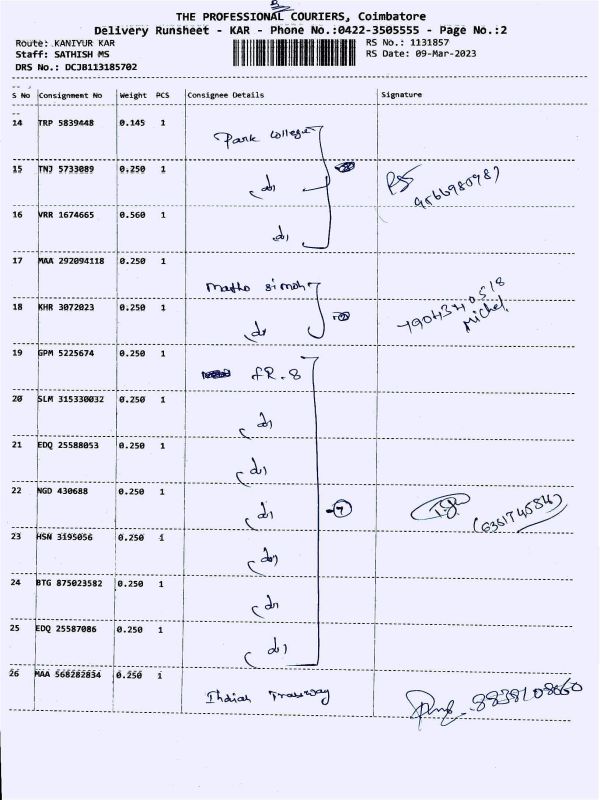 THE PROFESSIONAL COURIERS, Coimbatore
Delivery Runsheet - KAR - Phone No.:0422-3505555 - Page No.:2
Route: KANIYUR KAR RS No.: 1131857
Staff: SATHISH MS RS Date: 09-Mar-2023
DRS No.: DCJB113185702
S No Consignment No Weight PCS Consignee Details Signature
14 TRP 5839448 0.145 1 Park College
15 TNJ 5733089 0.250 1 do
16 VRR 1674665 0.560 1 do
17 MAA 292094118 0.250 1
18 KHR 3072023 0.250 1 do 7904340518 Michel
19 GPM 5225674 0.250 1 fR.8
20 SLM 315330032 0.250 1 do
21 EDQ 25588053 0.250 1 do
22 NGD 430688 0.250 1 do 7
23 HSN 3195056 0.250 1 do
24 BTG 875023582 0.250 1 do
25 EDQ 25587086 0.250 1 do
26 MAA 568282834 0.250 1 Indian